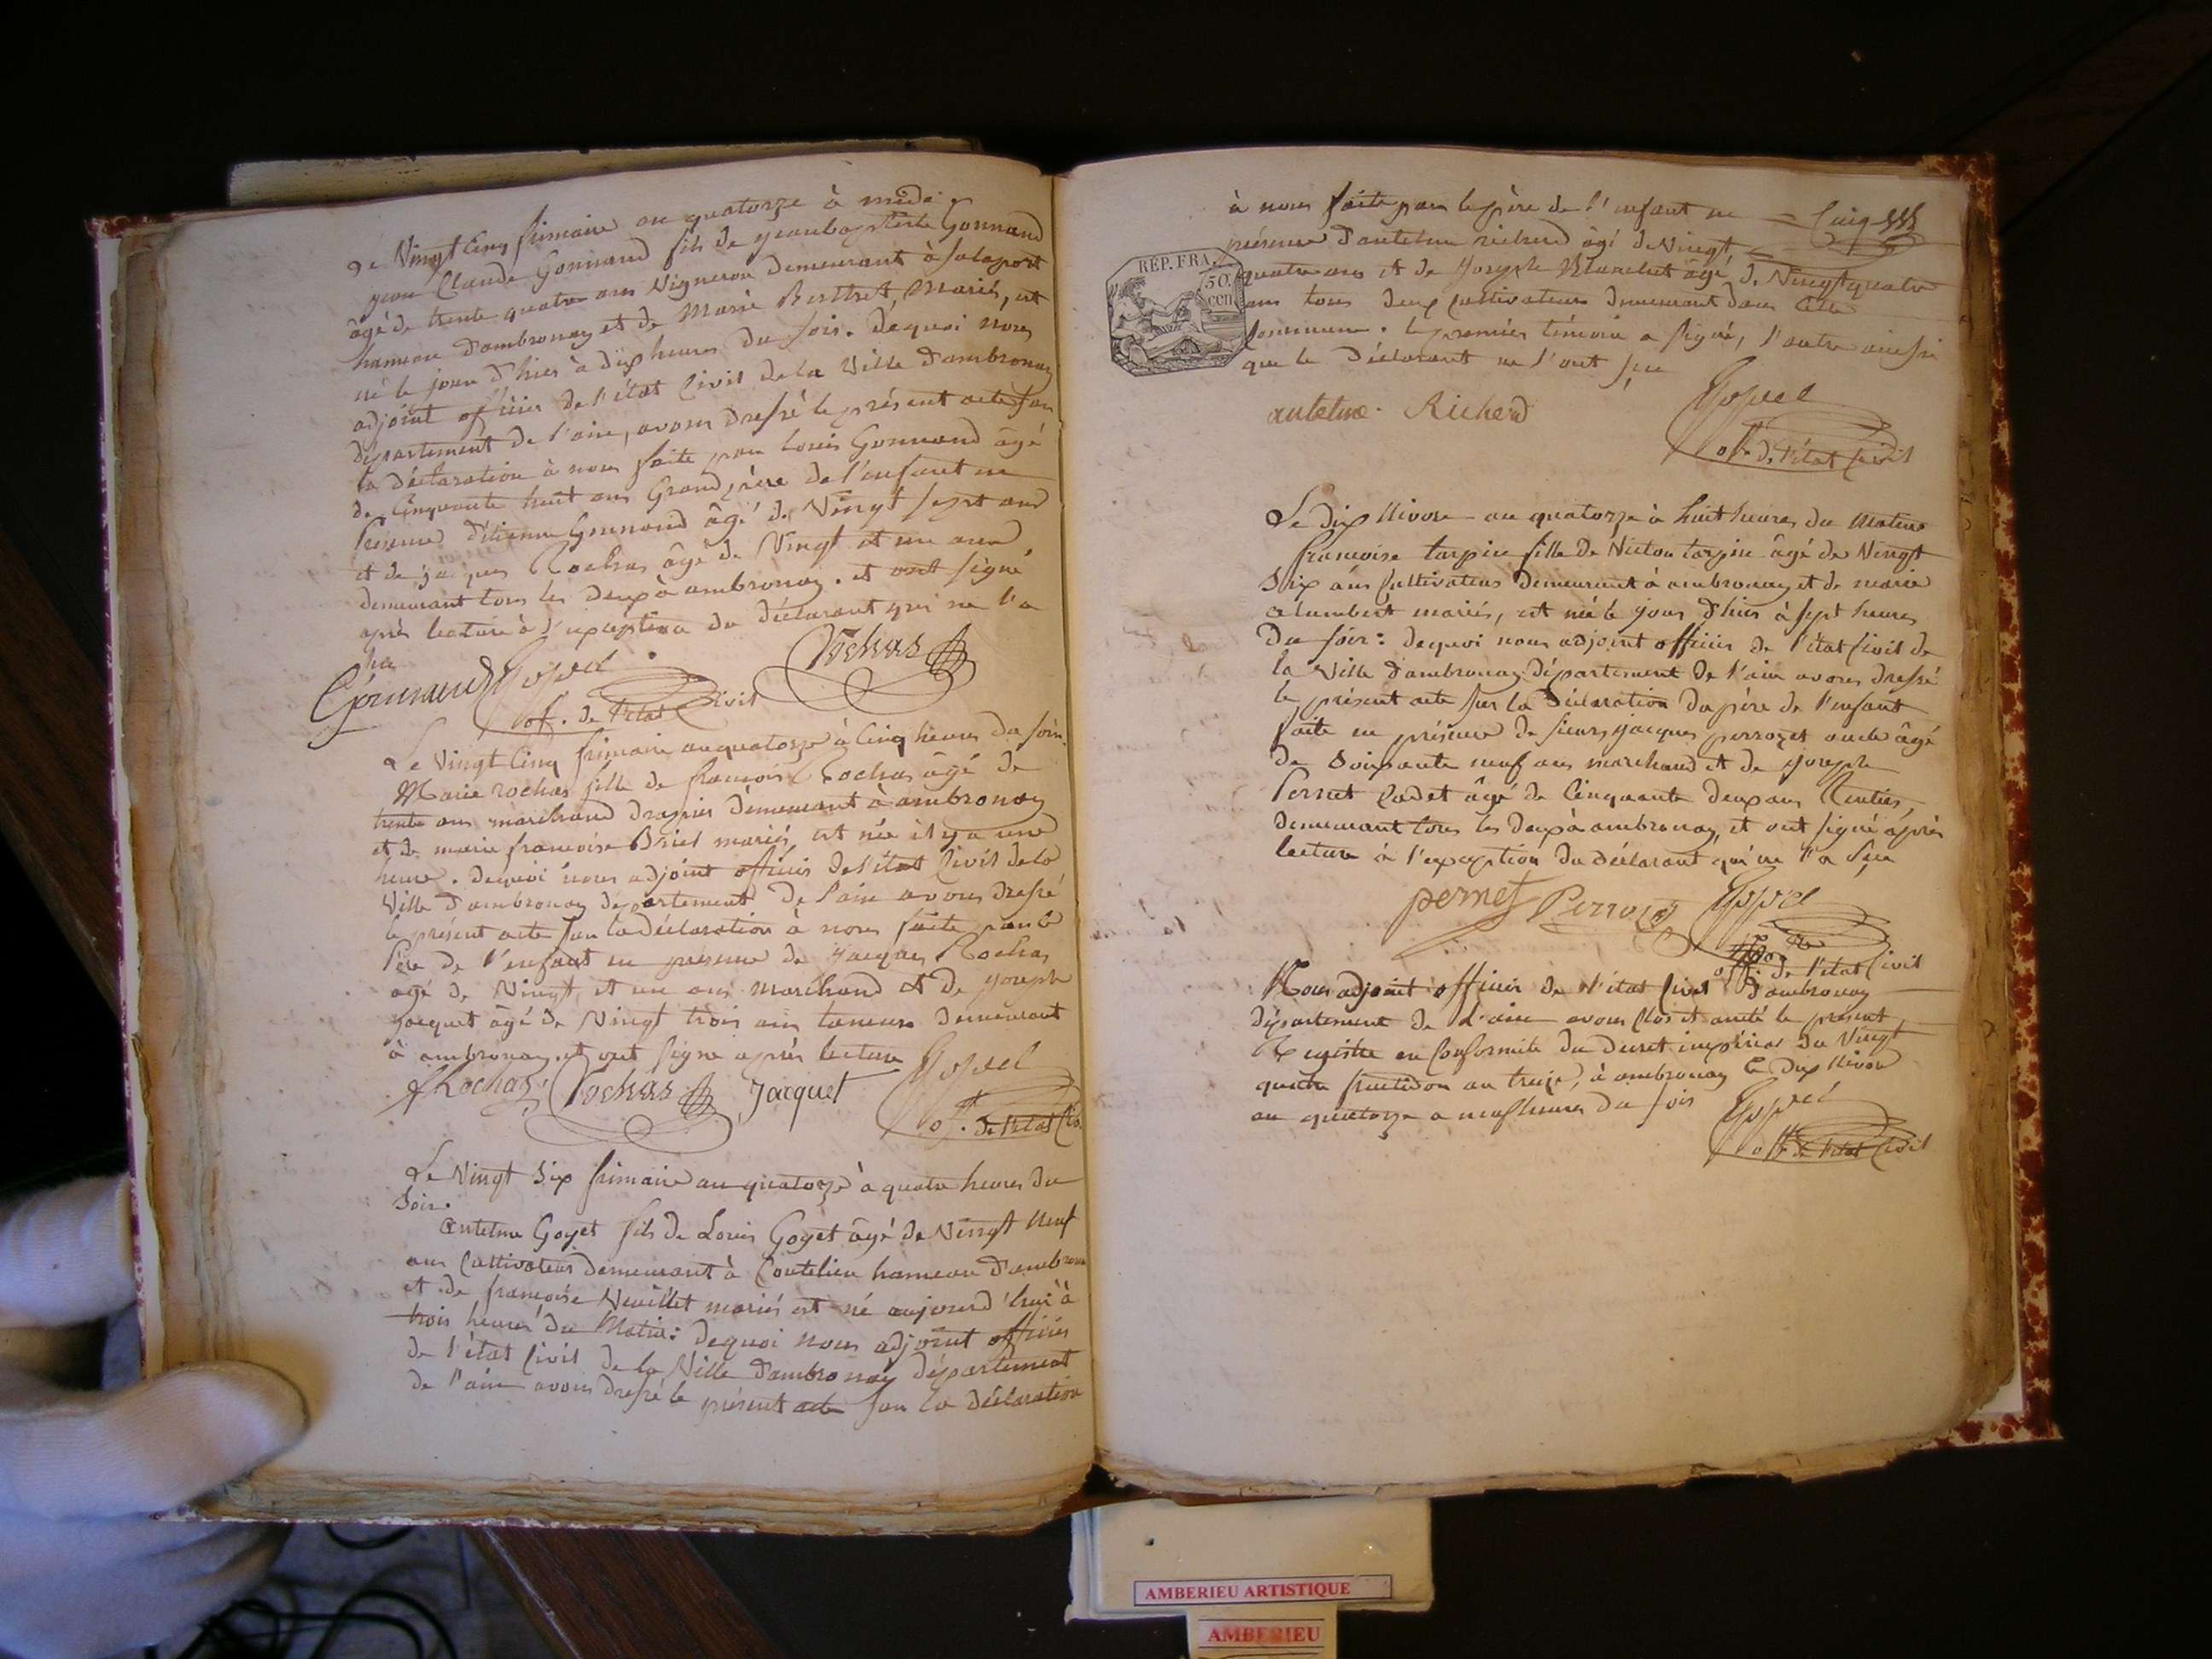 Le Vingt Cinq frimaire an quatorze à midi
jean Claude Gonnand fils de jeanbaptiste Gonnand
âgé de trente quatre ans Vigneron demeurant à Salaport
hameau d'ambronay et de Marie Berthet, mariés, est
né le jour d'hier à dix heures du soir. dequoi nous
adjoint officier de l'état Civil de la Ville d'ambronay
département de l'ain, avons dressé le présent acte sur
la déclaration à nous faite par Louis Gonnand âgé
de Cinquante huit ans Grand père de l'enfant en
présence d'étienne Gonnand âgé de Vingt sept ans
et de jacques Rochas âgé de Vingt et un ans
demeurant tous les deux à ambronay. et ont signé
après lecture à l'exception du déclarant qui ne l'a
su
Gonnand Rochas
of. de l'état Civil
Le Vingt Cinq frimaire an quatorze à Cinq heures du soir.
Marie rochas fille de françois Rochas âgé de
trente ans marchand drapier demeurant à ambronay
et de marie françoise Briel mariés, est née il y a une
heure. dequoi nous adjoint officier de l'état Civil de la
Ville d'ambronay département de l'ain avons dressé
le présent acte sur la déclaration à nous faite par le
Père de l'enfant en présence de jacques Rochas
agé de Vingt et un ans marchand et de joseph
jacquet âgé de Vingt trois ans taneur demeurant
à ambronay. et ont signe après lecture
Rochas Rochas Jacquet
of. de l'état Civ.
Le Vingt six frimaire an quatorze à quatre heures du
Soir.
antelme Goyet fils de Louis Goyet âgé de Vingt Neuf
ans Cultivateur demeurant à Coutelieu hameau d'ambronay
et de françoise Neuillet mariés est né aujourd'hui à
trois heures du Matin: dequoi nous adjoint officier
de l'état Civil de la Ville d'ambronay département
de l'ain avons dressé le présent acte sur la déclaration
à nous faite par le père de l'enfant en = Cinq
présence d'antelme richerd âgé de Vingt
quatre ans et de Joseph Blanchet âgé de Vingt quatre
ans tous deux Cultivateurs demeurant dans cette
Commune. le premier témoin a signé, l'autre ainsi
que le déclarant ne l'ont su
RÉP. FRA.
50.
cen
antelme. Richerd
of. de l'état Civil
Le dix Nivose an quatorze à huit heures du Matin
françoise tarpin fille de Victor tarpin âgé de Vingt
Six ans Cultivateur demeurant à ambronay et de marie
alumbert mariés, est née le jour d'hier à sept heures
du soir: dequoi nous adjoint officier de l'état Civil de
la Ville d'ambronay département de l'ain avons dressé
le présent acte sur la déclaration du père de l'enfant
faite en présence de sieurs jacques perrozet oncle âgé
de Soixante neuf ans marchand et de joseph
Pernet Cadet âgé de Cinquante deux ans Rentier,
demeurant tous les deux à ambronay, et ont signé après
lecture à l'exception du déclarant qui ne l'a su
pernet Perrozet
off. de l'état Civil
Nous adjoint officier de l'état Civil d'ambronay
département de L'ain avons Clos et arrêté le présent
Registre en Conformité du decret impérial du Vingt
quatre fructidor an treize, à ambronay le dix Nivose
an quatorze a neuf heures du soir
off. de l'état Civil
AMBERIEU ARTISTIQUE
AMBERIEU